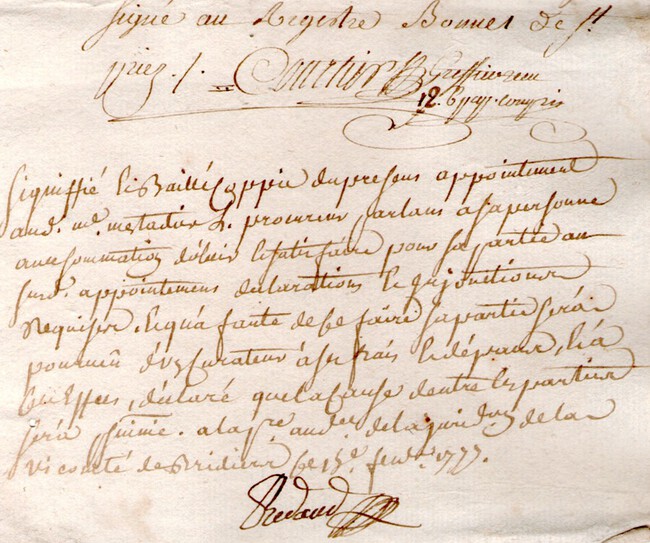 signé au Registre Bonnet de st
priez ./. Courtois Greffier
12. s papr compris
signiffié & Baillé Coppie du presens appointement
aud. me metadier p. procureur, parlans a sa personne
avec sommation d'obeir & satisfaire pour sa partie au
susd. appointement declarations & injonctions
Requises, & qu'a faute de ce faire sa partie sera
pourveu d'un curateur à ses frais & depens, & à
Ces Effets, declaré que la Cause d'entre les parties
sera suivie. a la pre. audce. de la juridon. de la
vicomté de Bridiers ce 15e. fevrier 1777.
Redaud